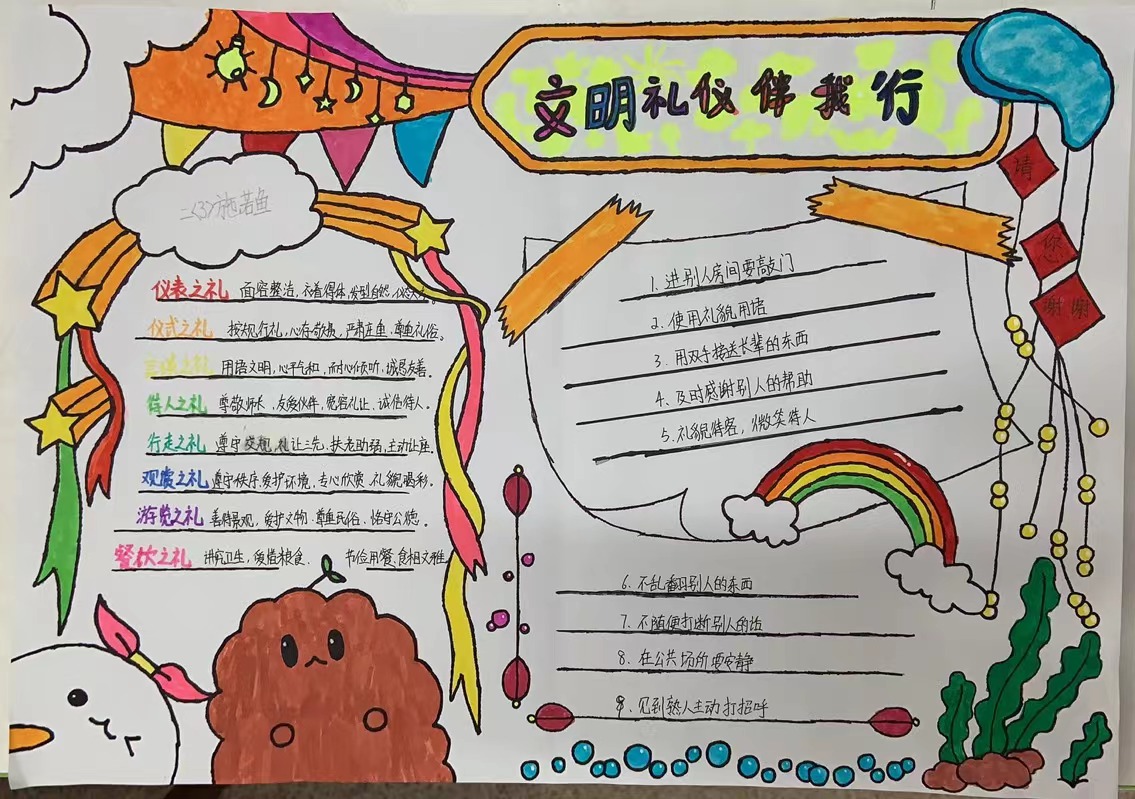 文明礼仪伴我行
请
您
谢谢
二(3)施若鱼
仪表之礼 面容整洁，衣着得体，发型自然，仪态大方。
仪式之礼 按规行礼，心存敬畏，严肃庄重，尊重礼俗。
言谈之礼 用语文明，心平气和，耐心倾听，诚恳友善。
待人之礼 尊敬师长，友爱伙伴，宽容礼让，诚信待人。
行走之礼 遵守交规，礼让三先，扶老助弱，主动让座。
观赏之礼 遵守秩序，爱护环境，专心欣赏，礼貌喝彩。
游览之礼 善待景观，爱护文物，尊重民俗，恪守公德。
餐饮之礼 讲究卫生，爱惜粮食，节俭用餐，食相文雅。
1. 进别人房间要敲门
2. 使用礼貌用语
3. 用双手接送长辈的东西
4. 及时感谢别人的帮助
5. 礼貌待客，微笑待人
6. 不乱翻别人的东西
7. 不随便打断别人的话
8. 在公共场所要安静
9. 见到熟人主动打招呼